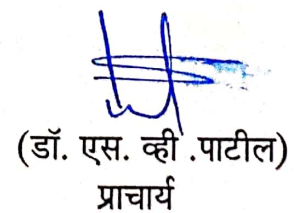 (डॉ. एस. व्ही .पाटील)
प्राचार्य